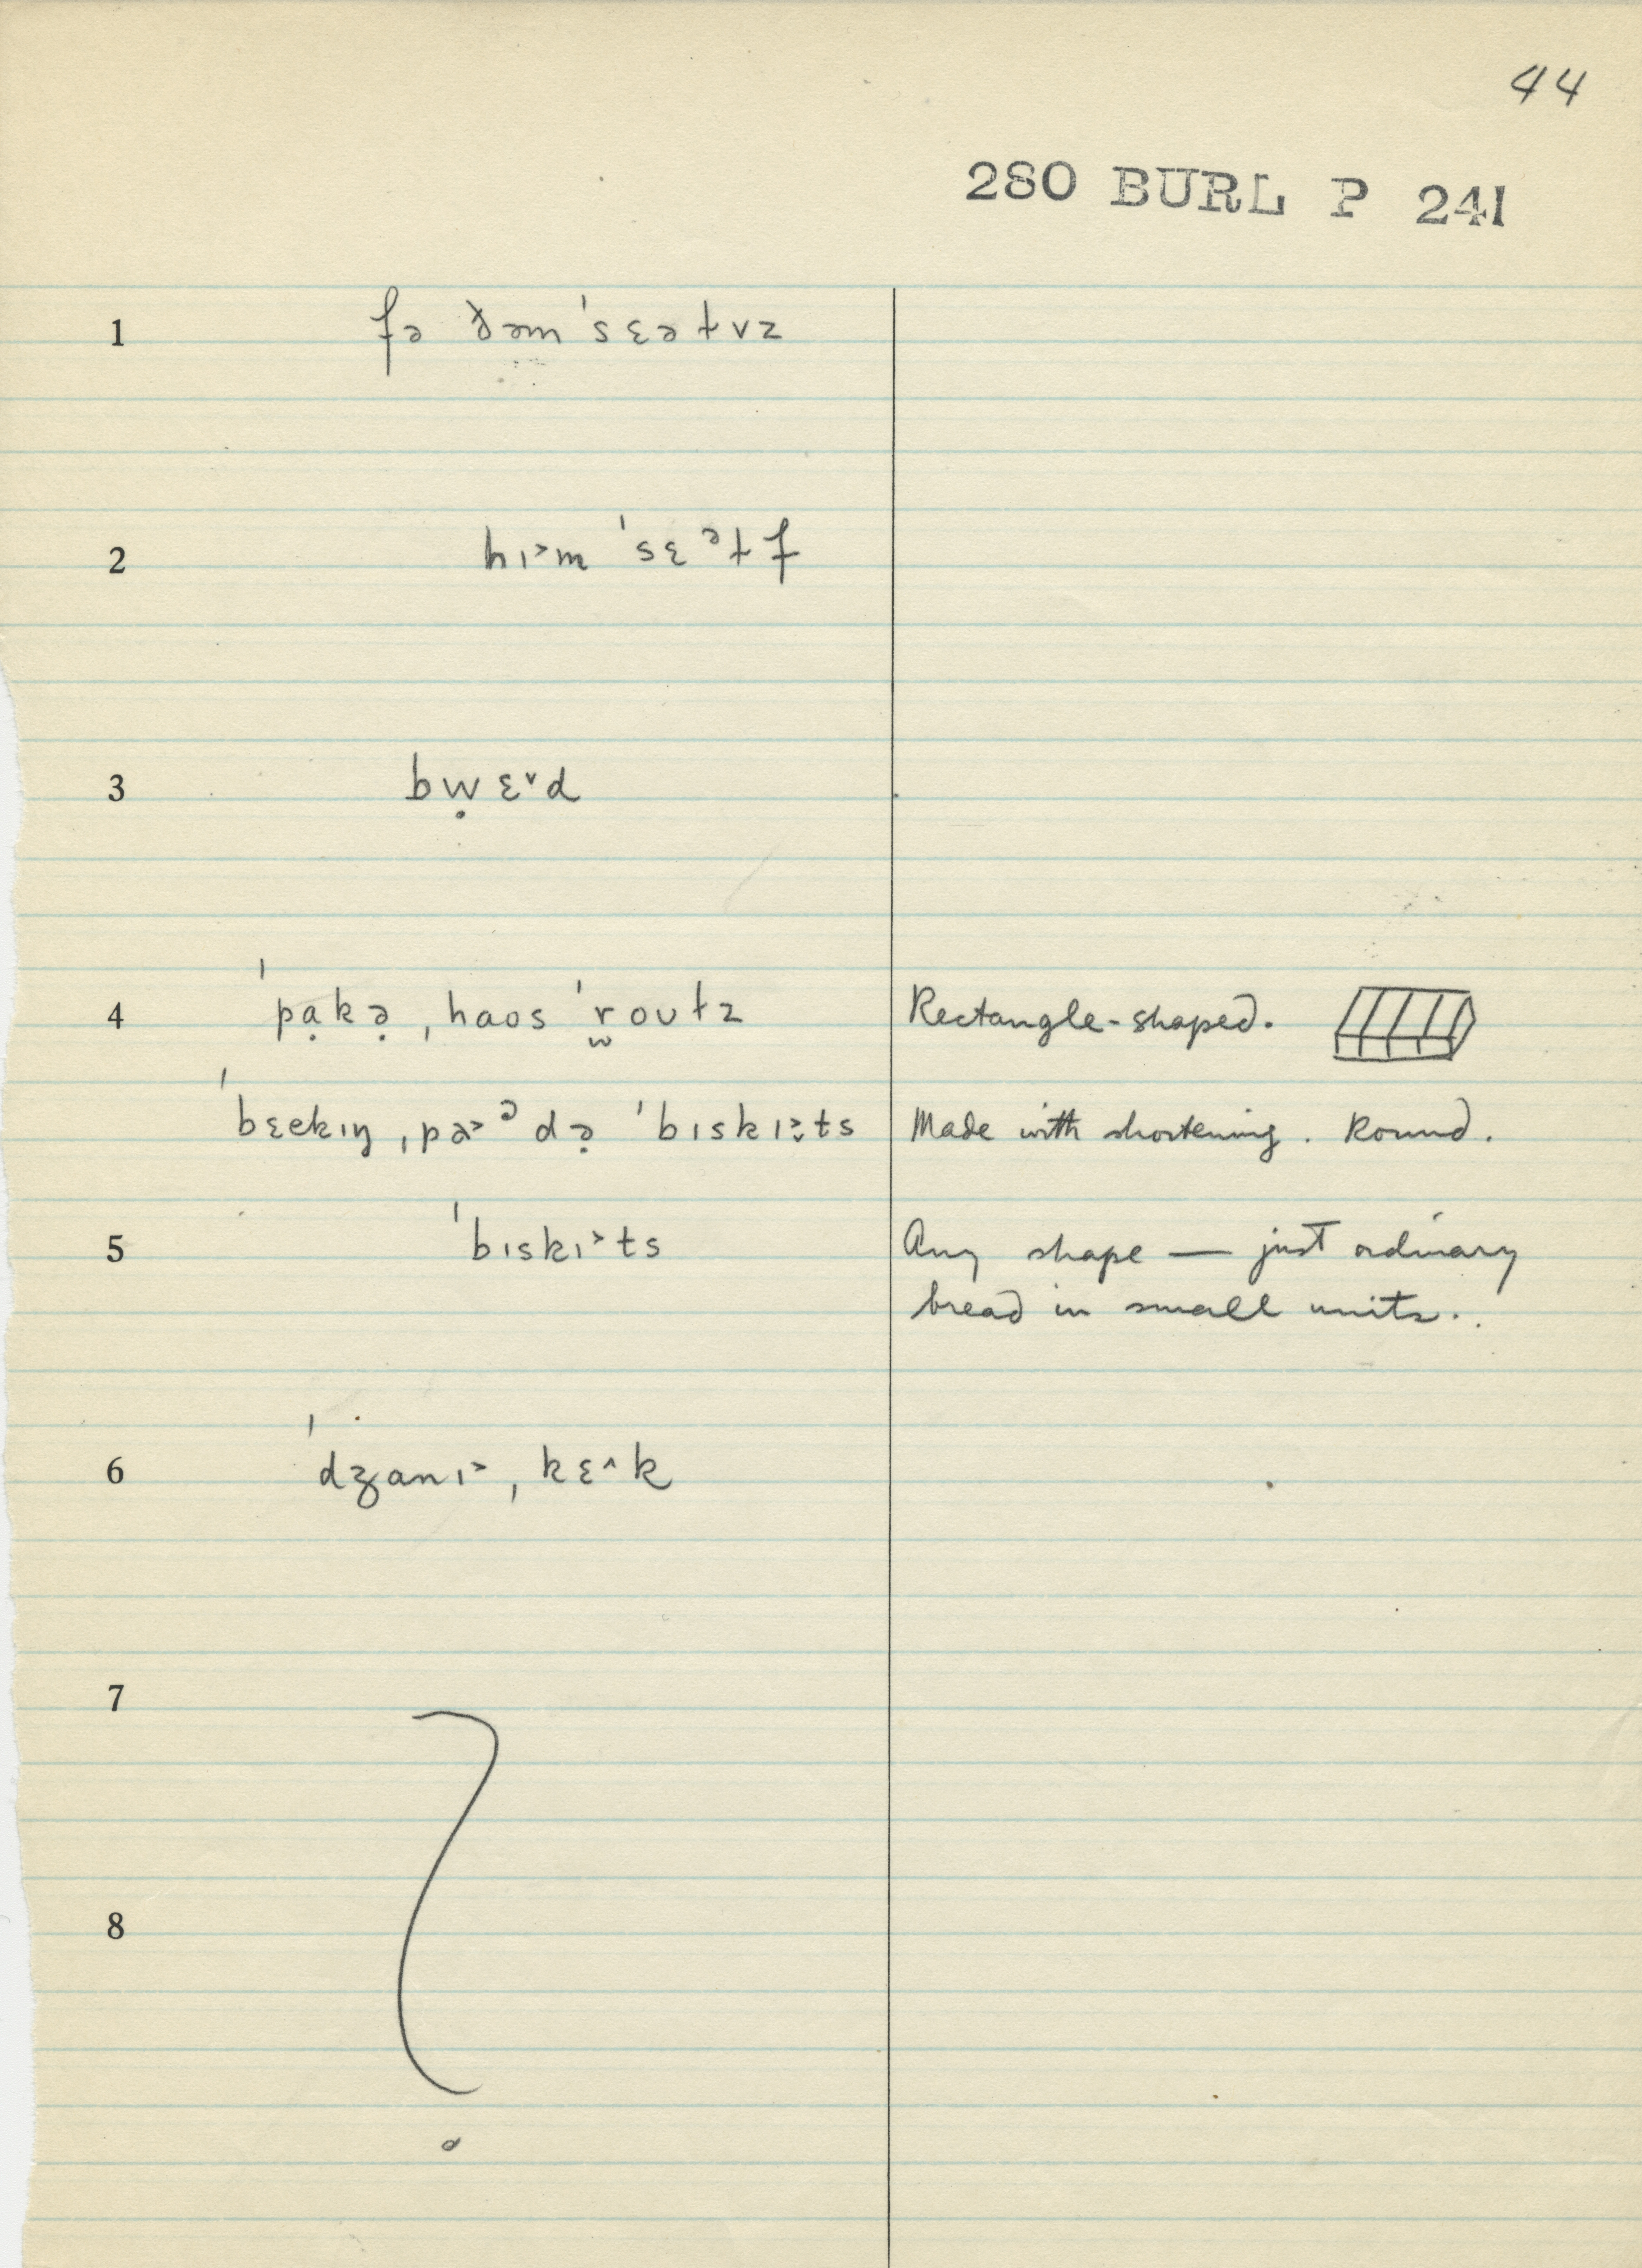 44
280 BURL P 241
1 fə ðəmˈsɛəɫvz
2 hɪ˃m ˈsɛᵊɫf
3 bẉɛ˅d
4 ˈpạkə̣ ˌhaos ˈr̫ouɫz Rectangle-shaped.
ˈbɛekɪŋ ˌpa˃ᵊdə̣ ˈbɪskɪ˃̣ts Made with shortening. Round.
5 ˈbɪskɪ˃ts Any shape — just ordinary
bread in small units.
6 ˈdʒanɪ˃ ˌkɛ˄k
7
8